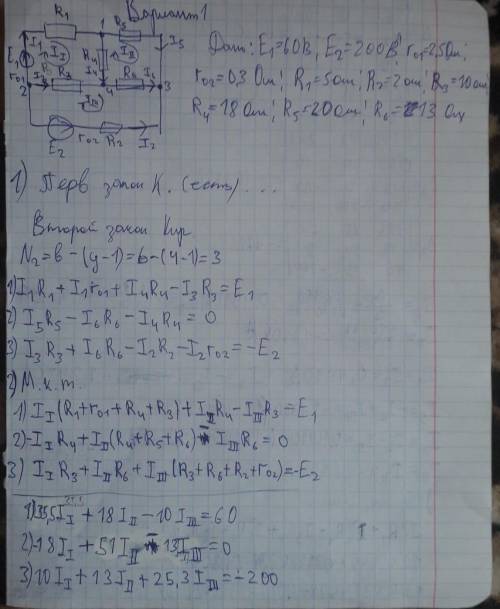 Вариант 1
R₁ 1 R₅
I₁ I_I R₄ I_II I₅
E₁
r₀₁ I₃ R₃ I₄ R₆ I₆
2 4 3
I_III
E₂ r₀₂ R₂ I₂
Дано: E₁=60В; E₂=200В; r₀₁=2,5Ом;
r₀₂=0,3 Ом; R₁=5Ом; R₂=2Ом; R₃=10Ом
R₄=18 Ом; R₅=20 Ом; R₆=13 Ом
1) Перв закон К. (есть) ...
Второй закон Кир
N₂=в-(у-1)=6-(4-1)=3
1) I₁R₁+I₁r₀₁+I₄R₄-I₃R₃=E₁
2) I₅R₅-I₆R₆-I₄R₄=0
3) I₃R₃+I₆R₆-I₂R₂-I₂r₀₂=-E₂
2) М.к.т.
1) I_I(R₁+r₀₁+R₄+R₃)+I_II R₄-I_III R₃=E₁
2) -I_I R₄+I_II(R₄+R₅+R₆)-I_III R₆=0
3) I_I R₃+I_II R₆+I_III(R₃+R₆+R₂+r₀₂)=-E₂
1) 35,5I_I+18I_II-10I_III=60
2) -18I_I+51I_II-13I_III=0
3) 10I_I+13I_II+25,3I_III=-200